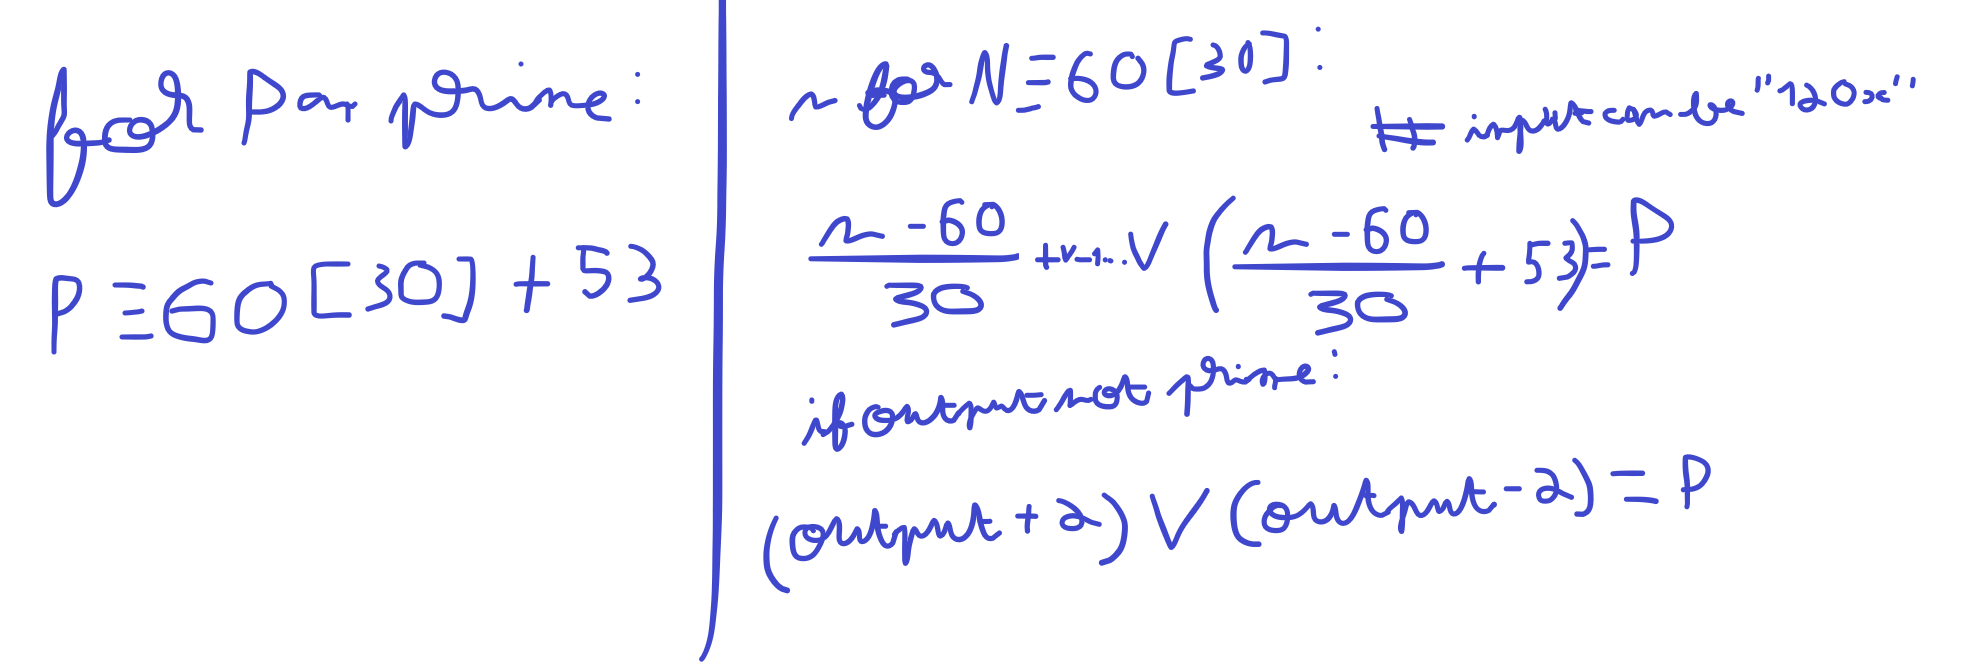 for P any prime:
P ≡ 60 [30] + 53
n for N ≡ 60 [30] :
# input can be "120x"
n - 60 / 30 + v -1.. V ( n - 60 / 30 + 53) = P
if output not prime:
(output + 2) V (output - 2) = P